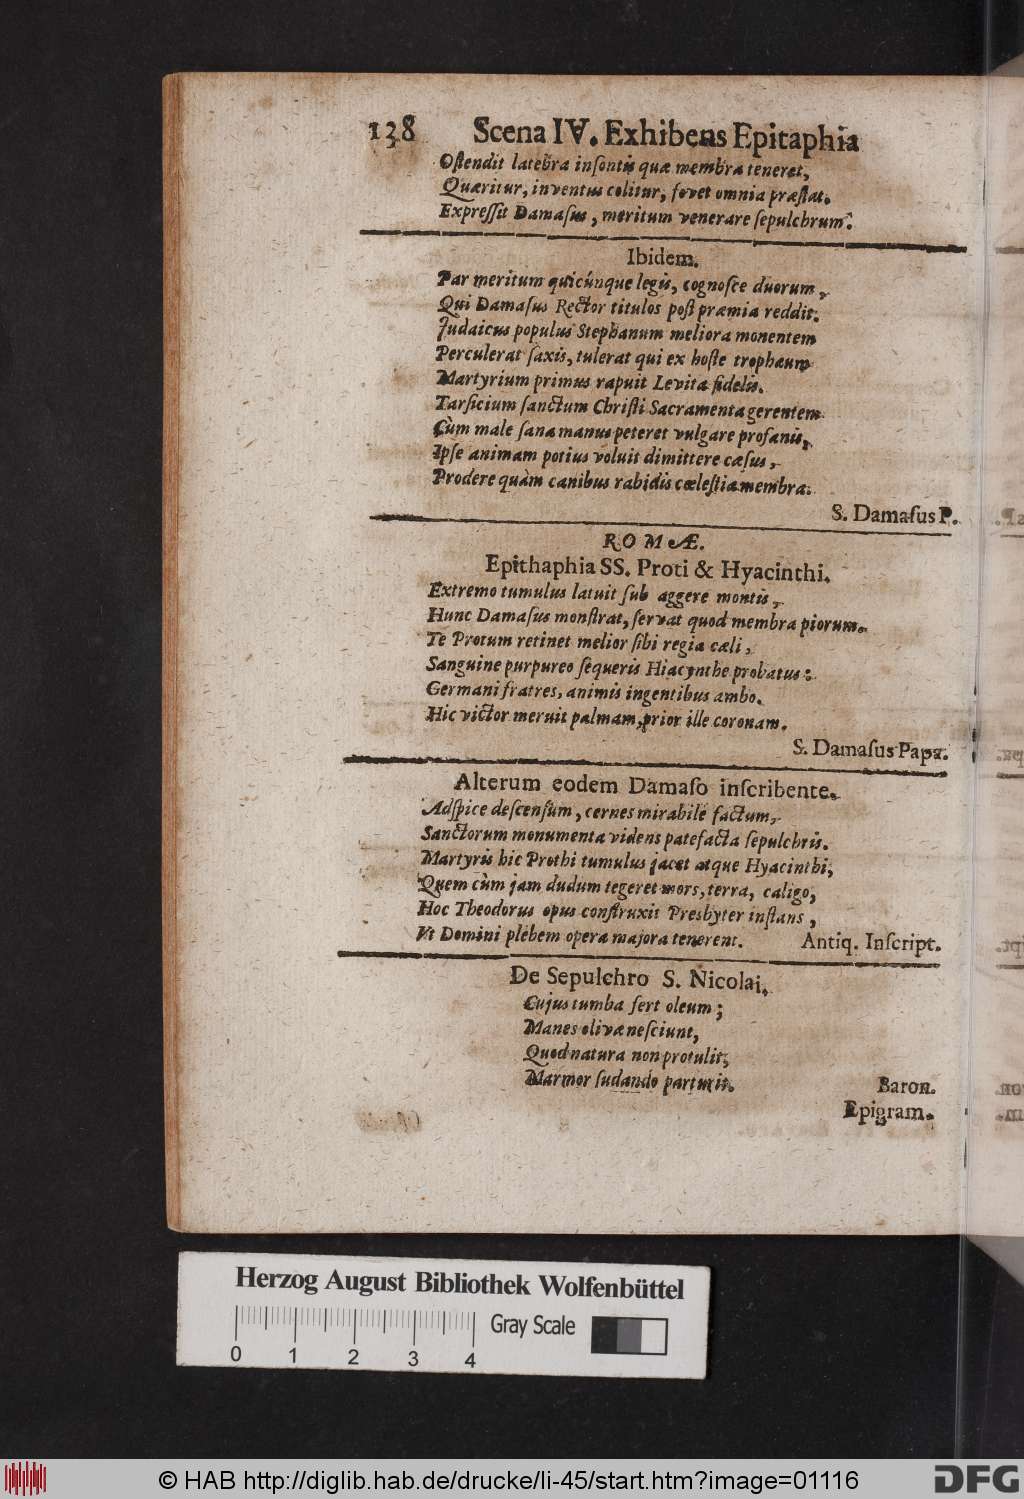 138 Scena IV. Exhibens Epitaphia
Oſtendit latebra inſontis quæ membra teneret,
Quæritur, inventus colitur, fovet omnia præſtat.
Expreſſit Damaſus, meritum venerare ſepulchrum.
Ibidem.
Par meritum quicúnque legis, cognoſce duorum,
Qui Damaſus Rector titulos poſt præmia reddit.
Judaicus populus Stephanum meliora monentem
Perculerat ſaxis, tulerat qui ex hoſte trophæum
Martyrium primus rapuit Levita fidelis.
Tarſicium ſanctum Chriſti Sacramenta gerentem
Cùm male ſana manus peteret vulgare profanis,
Ipſe animam potius voluit dimittere cæſus,
Prodere quàm canibus rabidis cœleſtia membra.
S. Damaſus P.
ROMÆ.
Epithaphia SS. Proti & Hyacinthi.
Extremo tumulus latuit ſub aggere montis,
Hunc Damaſus monſtrat, ſervat quod membra piorum.
Te Protum retinet melior ſibi regia cæli,
Sanguine purpureo ſequeris Hiacynthe probatus:
Germani fratres, animis ingentibus ambo.
Hic victor meruit palmam, prior ille coronam.
S. Damaſus Papa.
Alterum eodem Damaſo inſcribente.
Adſpice deſcenſum, cernes mirabile factum,
Sanctorum monumenta videns patefacta ſepulchris.
Martyris hic Prothi tumulus jacet atque Hyacinthi,
Quem cùm jam dudum tegeret mors, terra, caligo,
Hoc Theodorus opus conſtruxit Presbyter inſtans,
Vt Domini plebem opera majora tenerent. Antiq. Inſcript.
De Sepulchro S. Nicolai.
Cujus tumba fert oleum;
Manes olivæ neſciunt,
Quod natura non protulit,
Marmor ſudando parturit.
Baron.
Epigram.
Herzog August Bibliothek Wolfenbüttel
Gray Scale
0 1 2 3 4
© HAB http://diglib.hab.de/drucke/li-45/start.htm?image=01116
DFG